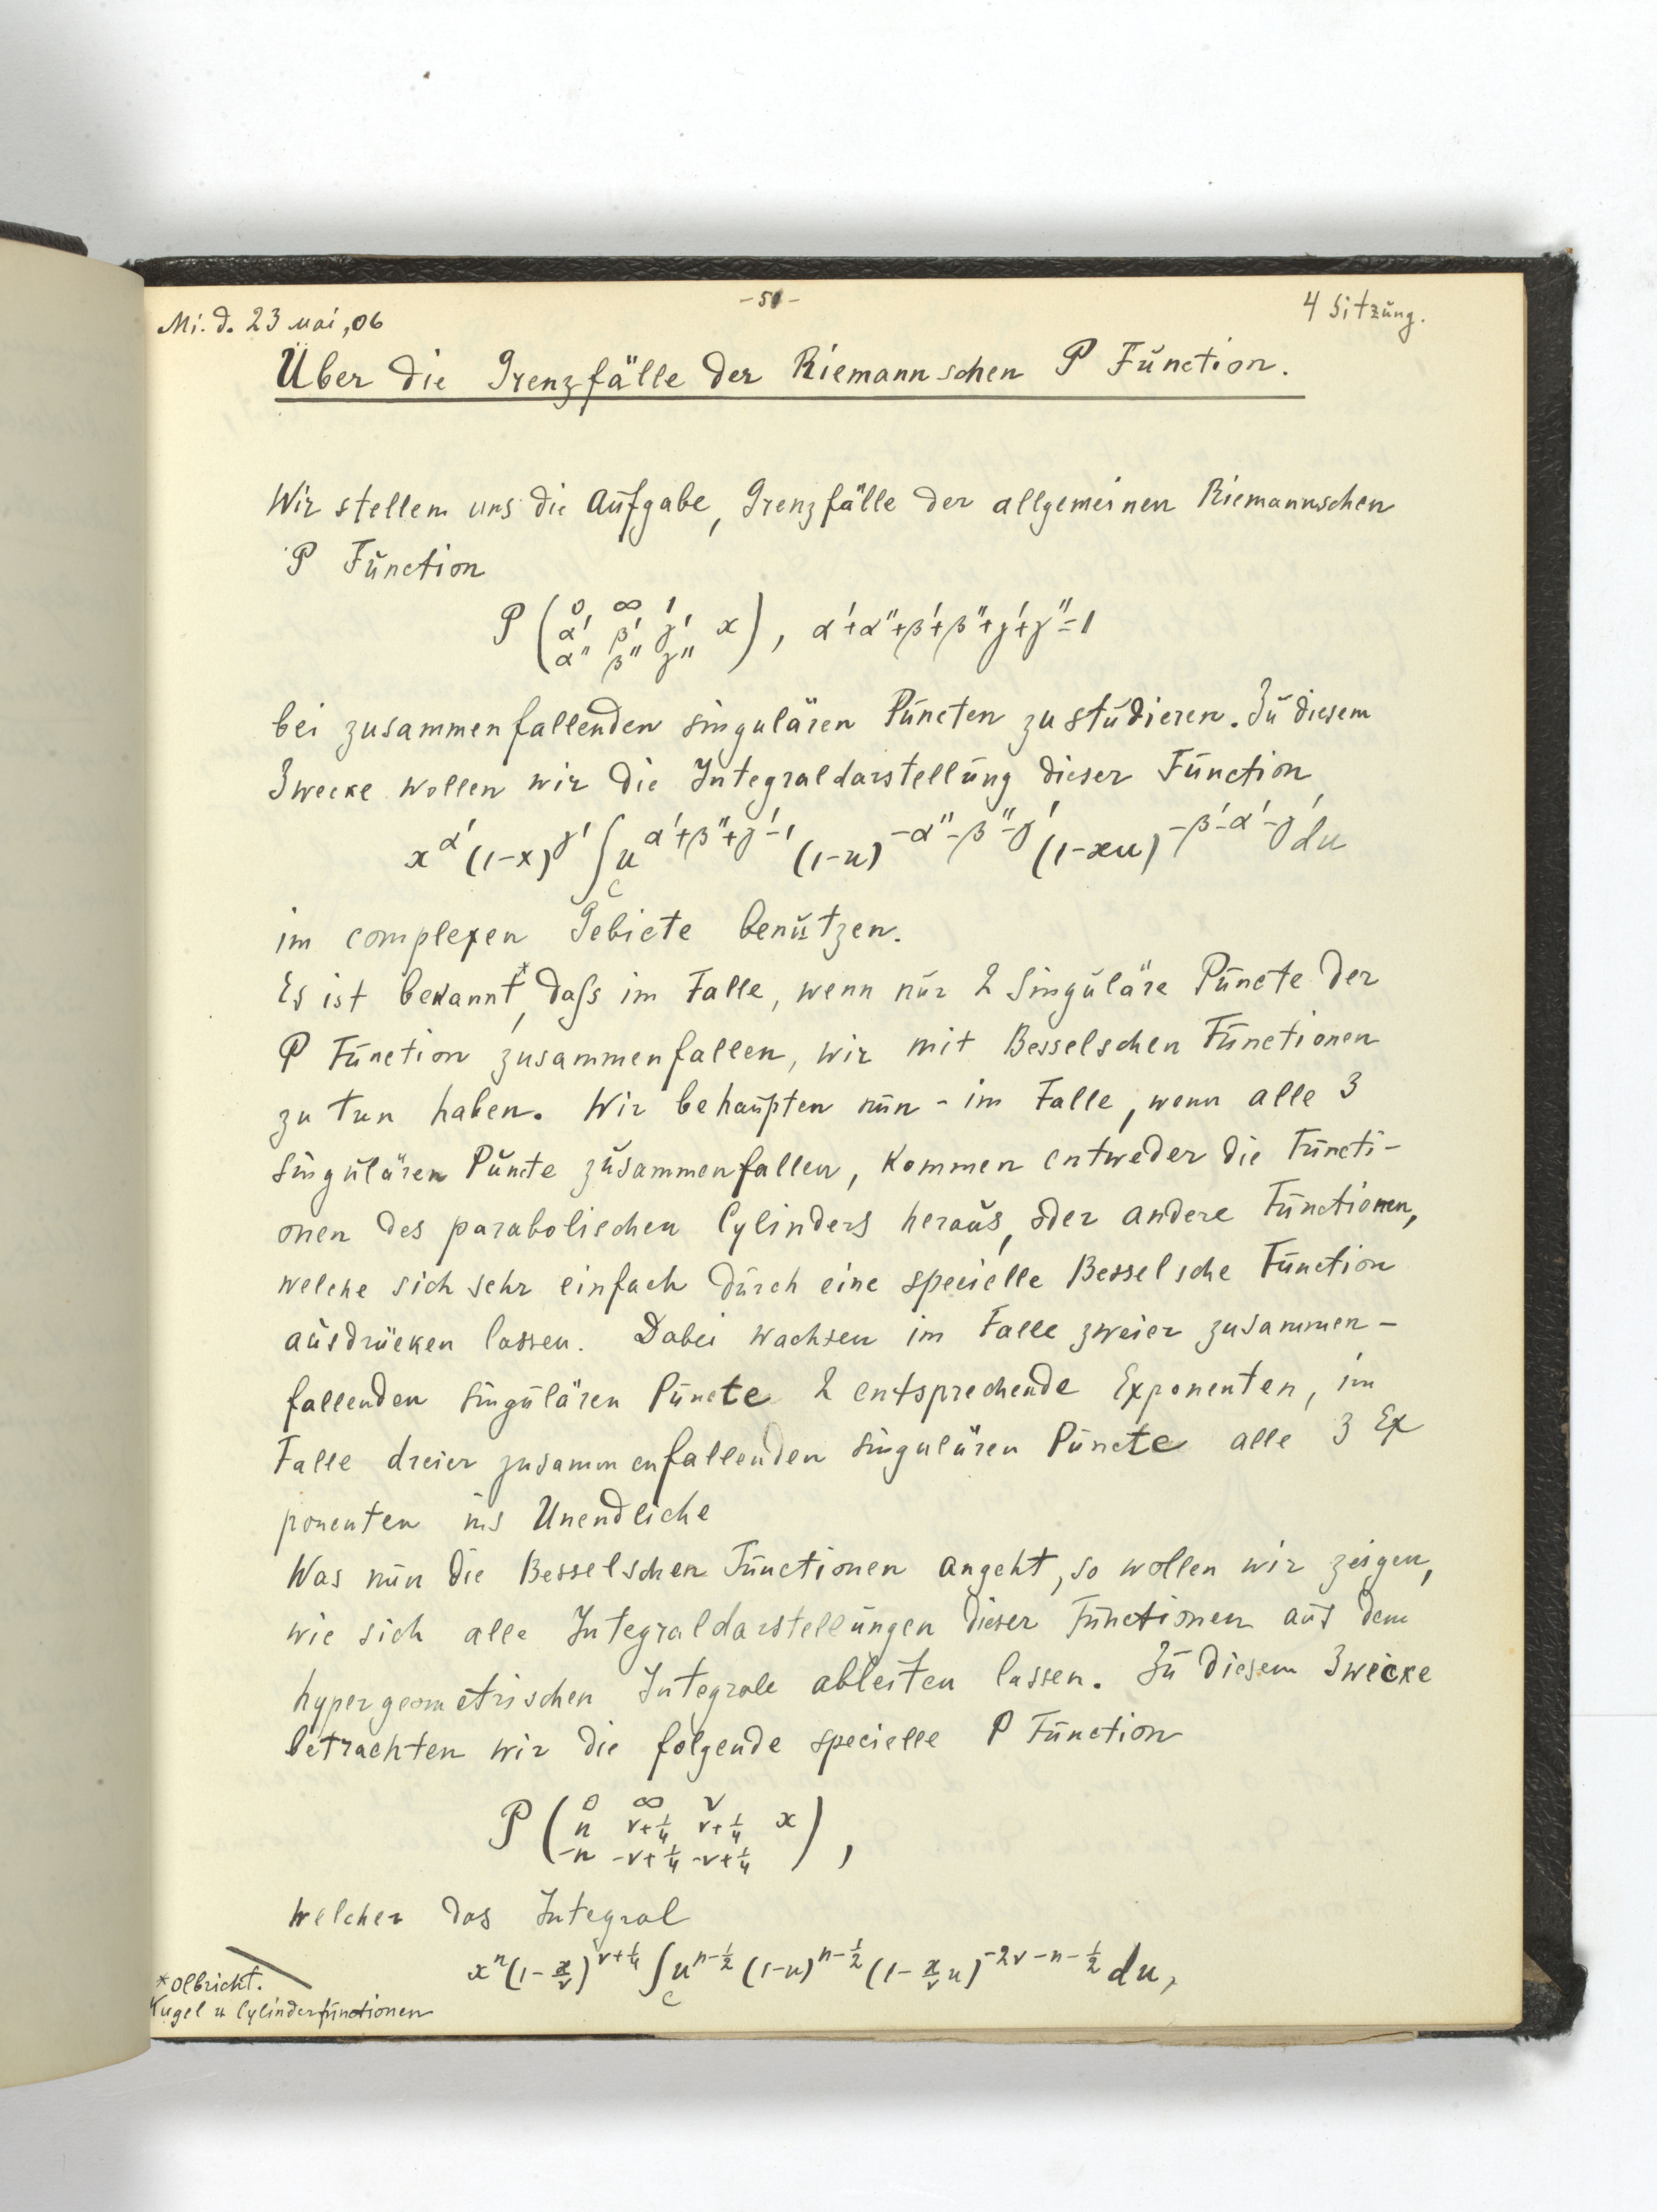 Mi. d. 23 Mai, 06
- 51 -
4 Sitzung.
Über die Grenzfälle der Riemannschen P Function.
Wir stellen uns die Aufgabe, Grenzfälle der allgemeinen Riemannschen
P Function
P ( 0 ∞ 1
α' β' γ' x ) , α'+α''+β'+β''+γ'+γ''=1
α'' β'' γ''
bei zusammenfallenden singulären Puncten zu studieren. Zu diesem
Zwecke wollen wir die Integraldarstellung dieser Function
x^α' (1-x)^γ' ∫_C u^{α'+β''+γ'-1} (1-u)^{-α''-β''-γ'} (1-xu)^{-β'-α'-γ'} du
im complexen Gebiete benutzen.
Es ist bekannt*, dass im Falle, wenn nur 2 singuläre Puncte der
P Function zusammenfallen, wir mit Besselschen Functionen
zu tun haben. Wir behaupten nun - im Falle, wenn alle 3
singulären Puncte zusammenfallen, kommen entweder die Functi-
onen des parabolischen Cylinders heraus, oder andere Functionen,
welche sich sehr einfach durch eine specielle Besselsche Function
ausdrücken lassen. Dabei wachsen im Falle zweier zusammen-
fallenden singulären Puncte 2 entsprechende Exponenten, im
Falle dreier zusammenfallenden singulären Puncte alle 3 Ex
ponenten ins Unendliche
Was nun die Besselschen Functionen angeht, so wollen wir zeigen,
wie sich alle Integraldarstellungen dieser Functionen aus dem
hypergeometrischen Integrale ableiten lassen. Zu diesem Zwecke
betrachten wir die folgende specielle P Function
P ( 0 ∞ ν
n ν+1/4 ν+1/4 x ) ,
-n -ν+1/4 -ν+1/4
welcher das Integral
x^n (1-x/ν)^{ν+1/4} ∫_C u^{n-1/2} (1-u)^{n-1/2} (1-x/ν u)^{-2ν-n-1/2} du,
* Olbricht.
Kugel u Cylinderfunctionen